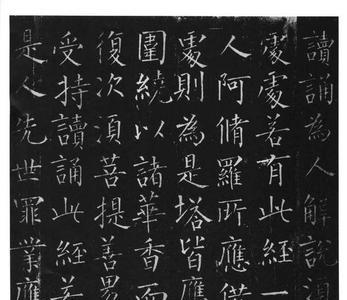 讀誦為人解說湏
處處若有此經一
人阿脩羅所應供
處則為是塔皆應
圍繞以諸華香而
復次湏菩提善男
受持讀誦此經若
是人先世罪業應